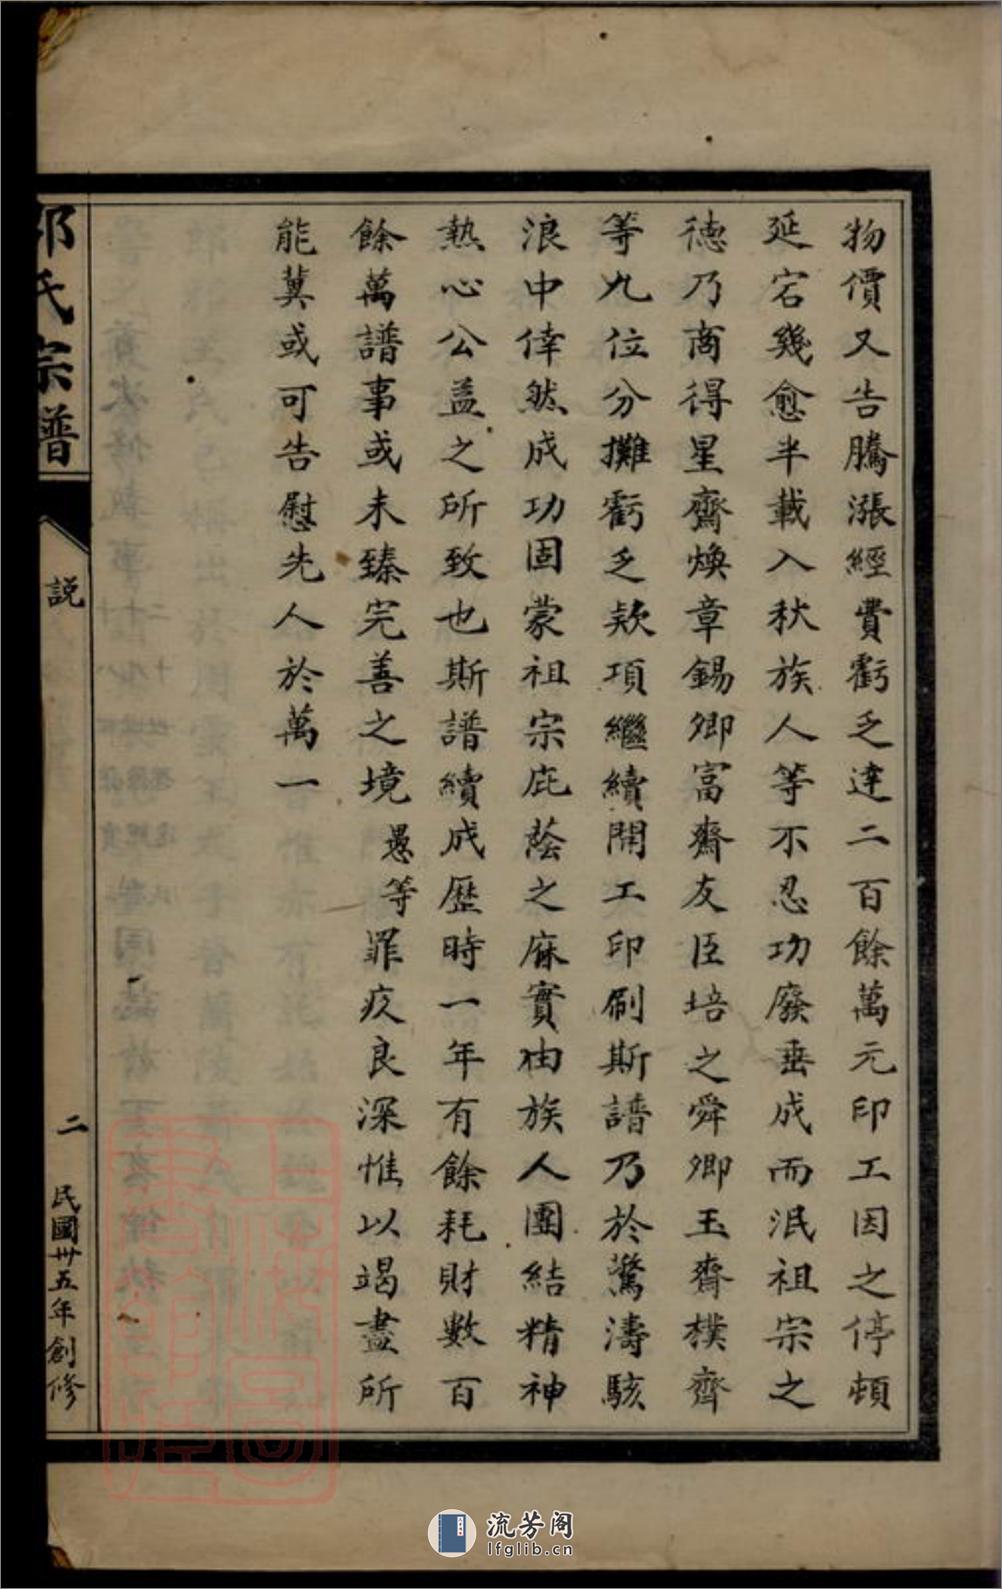 物價又告騰漲經費虧乏達二百餘萬元印工因之停頓
延宕幾愈半載入秋族人等不忍功廢垂成而泯祖宗之
德乃商得星齋煥章錫卿富齋友臣培之舜卿玉齋樸齊
等九位分攤虧乏欵項繼續開工印刷斯譜乃於驚濤駭
浪中倖然成功固蒙祖宗庇蔭之庥實由族人團結精神
熱心公益之所致也斯譜續成歷時一年有餘耗財數百
餘萬譜事或未臻完善之境愚等罪疚良深惟以竭盡所
能冀或可告慰先人於萬一
氏宗譜
説
二
民國卅五年創修
流芳阁
lfglib.cn